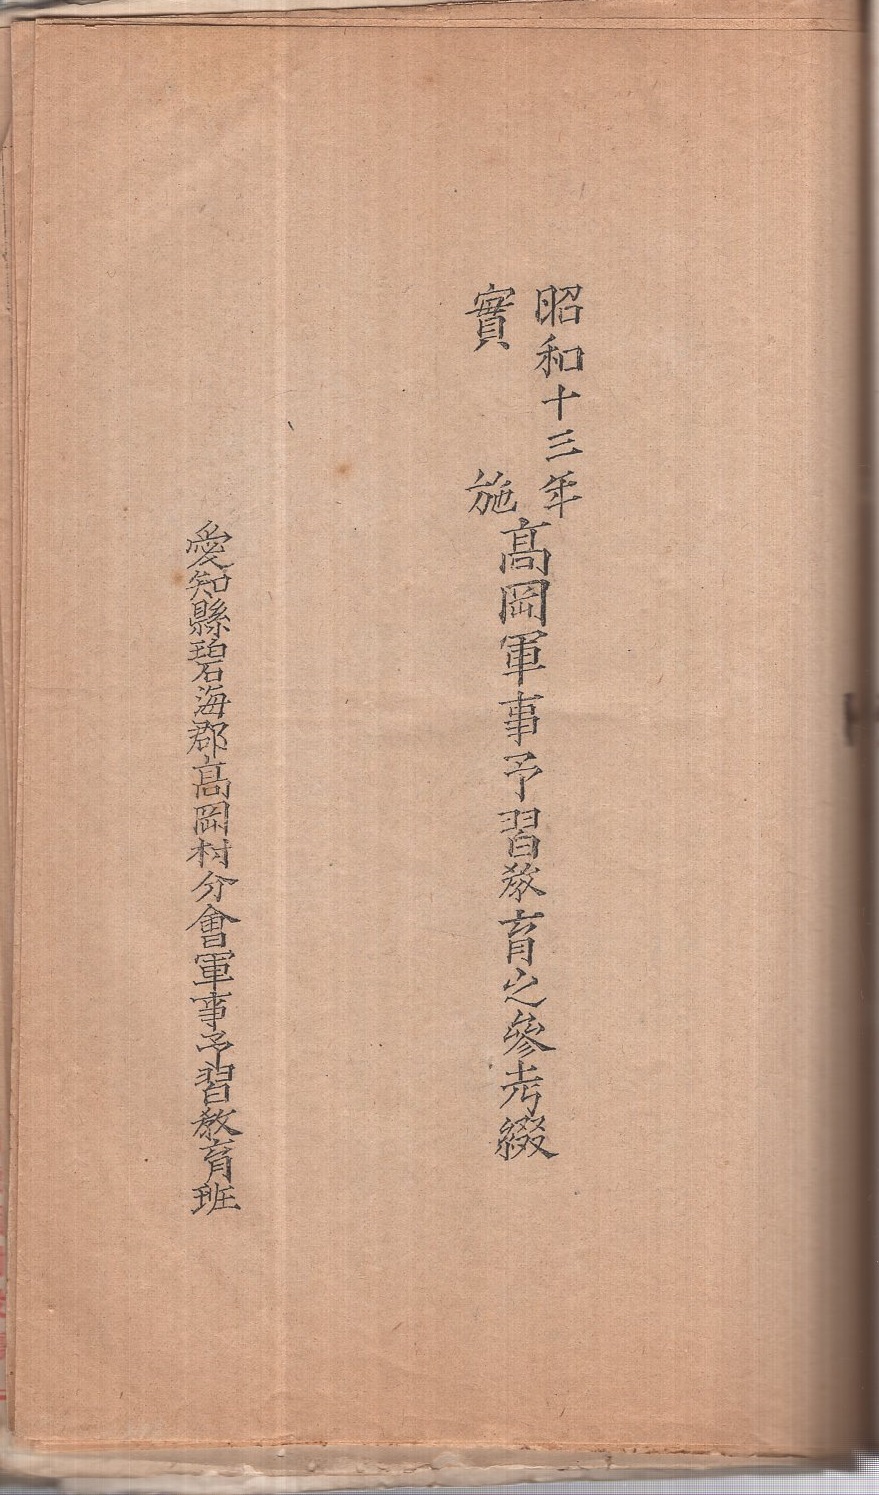 昭和十三年
實施
髙岡軍事予習教育之參考綴
愛知縣碧海郡髙岡村分會軍事予習教育班